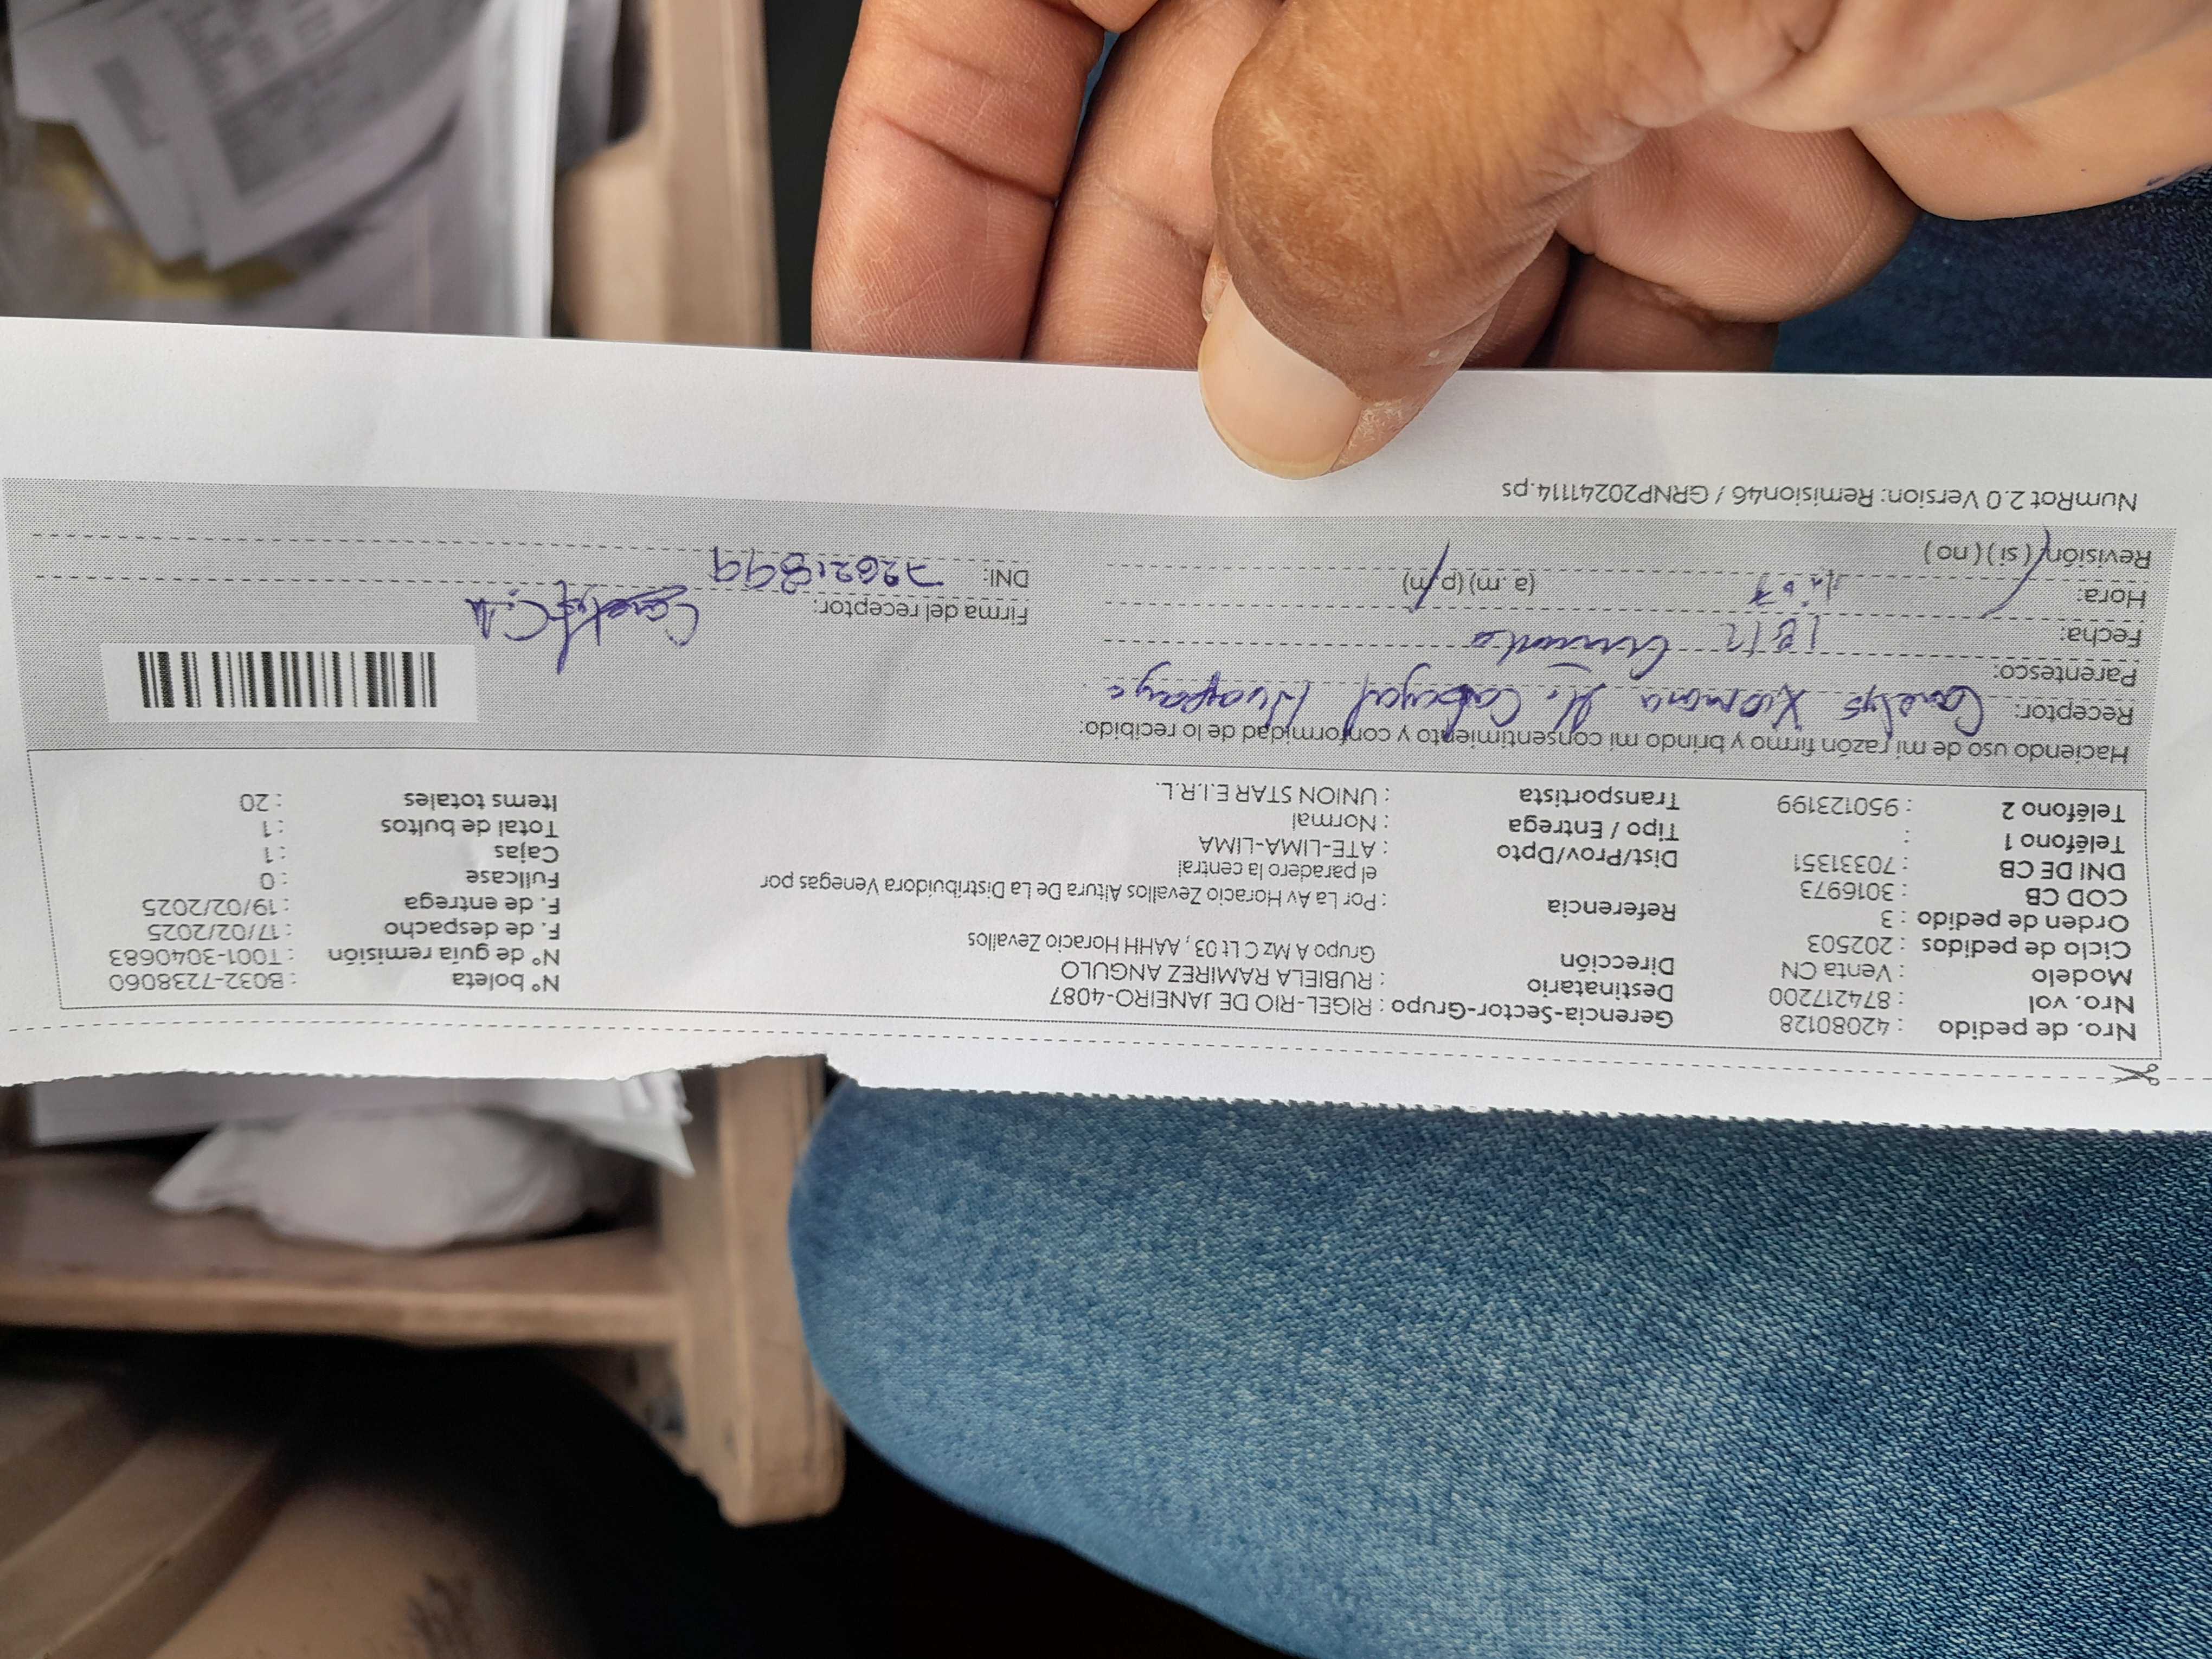 Nro. de pedido : 42080128
Nro. vol : 874217200
Modelo : Venta CN
Ciclo de pedidos : 202503
Orden de pedido : 3
COD CB : 3016973
DNI DE CB : 70331351
Teléfono 1 :
Teléfono 2 : 950123199
Gerencia-Sector-Grupo : RIGEL-RIO DE JANEIRO-4087
Destinatario : RUBIELA RAMIREZ ANGULO
Dirección Grupo A Mz C Lt 03 , AAHH Horacio Zevallos
Referencia : Por La Av Horacio Zevallos Altura De La Distribuidora Venegas por
el paradero la central
Dist/Prov/Dpto : ATE-LIMA-LIMA
Tipo / Entrega : Normal
Transportista : UNION STAR E.I.R.L.
N° boleta : B032-7238060
N° de guía remisión : T001-3040683
F. de despacho : 17/02/2025
F. de entrega : 19/02/2025
Fullcase : 0
Cajas : 1
Total de bultos : 1
Items totales : 20
Haciendo uso de mi razón firmo y brindo mi consentimiento y conformidad de lo recibido:
Receptor: Xiomara
Parentesco:
Fecha: 18/2
Hora: (a.m) (p.m)
Revisión: (si) (no)
Firma del receptor:
DNI: 72621899
NumRot 2.0 Version: Remision46 / GRNP20241114.ps